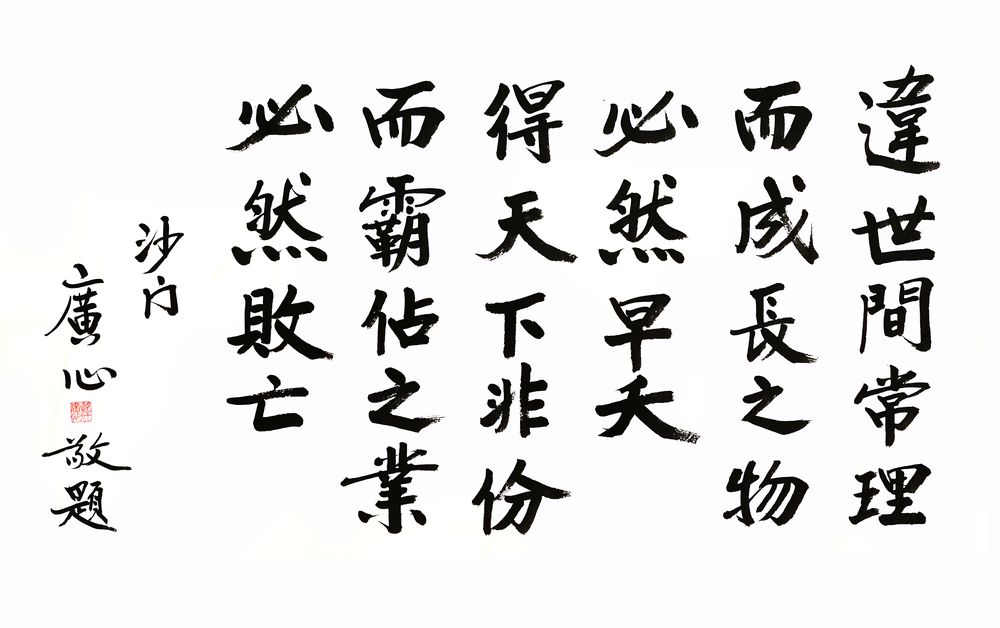 違世間常理
而成長之物
必然早夭
得天下非份
而霸佔之業
必然敗亡
沙门
廣心
敬題